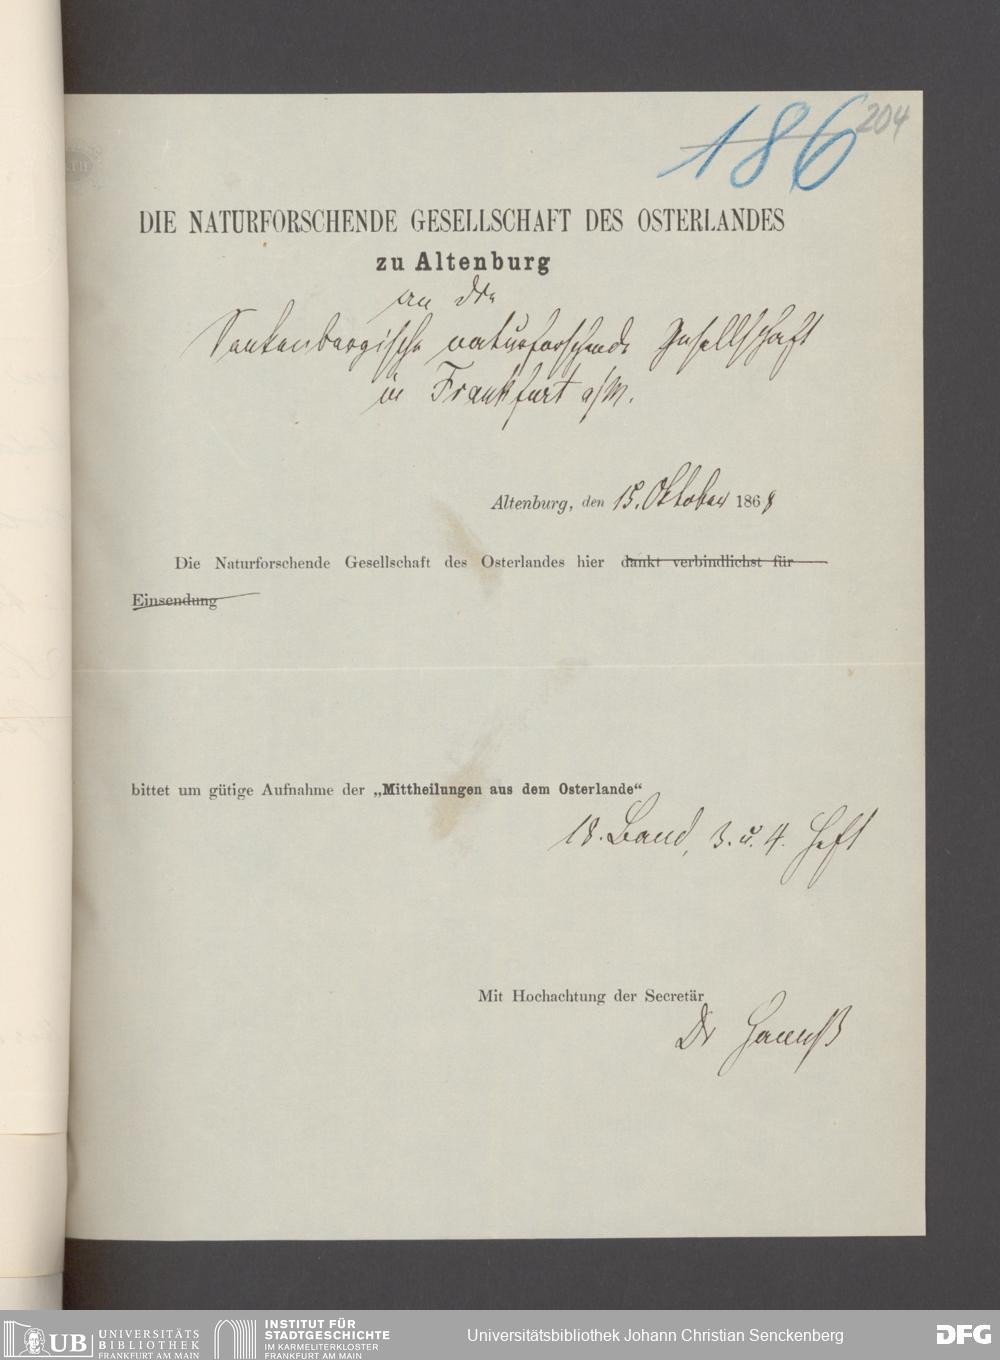 186 204
DIE NATURFORSCHENDE GESELLSCHAFT DES OSTERLANDES
zu Altenburg
an die
Senkenbergische naturforschende Gesellschaft
in Frankfurt a/M.
Altenburg, den 15. Oktober 1868
Die Naturforschende Gesellschaft des Osterlandes hier dankt verbindlichst für
Einsendung
bittet um gütige Aufnahme der „Mittheilungen aus dem Osterlande“
18. Band, 3. u. 4. Heft
Mit Hochachtung der Secretär
Dr
UB UNIVERSITÄTS
BIBLIOTHEK
FRANKFURT AM MAIN
INSTITUT FÜR
STADTGESCHICHTE
IM KARMELITERKLOSTER
FRANKFURT AM MAIN
Universitätsbibliothek Johann Christian Senckenberg
DFG